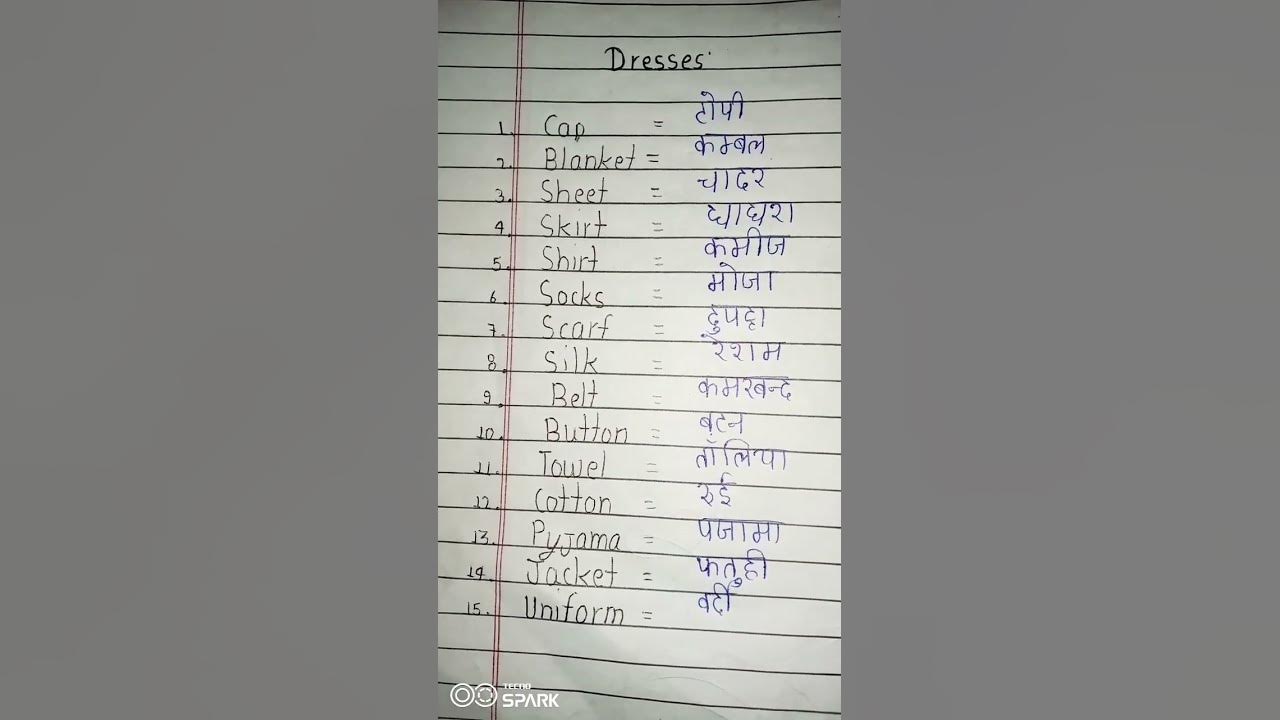 Dresses
1. Cap = टोपी
2. Blanket = कम्बल
3. Sheet = चादर
4. Skirt = घाघरा
5. Shirt = कमीज
6. Socks = मोजा
7. Scarf = दुपट्टा
8. Silk = रेशम
9. Belt = कमरबन्द
10. Button = बटन
11. Towel = तौलिया
12. Cotton = रुई
13. Pyjama = पजामा
14. Jacket = फतुही
15. Uniform = वर्दी
TECNO
SPARK